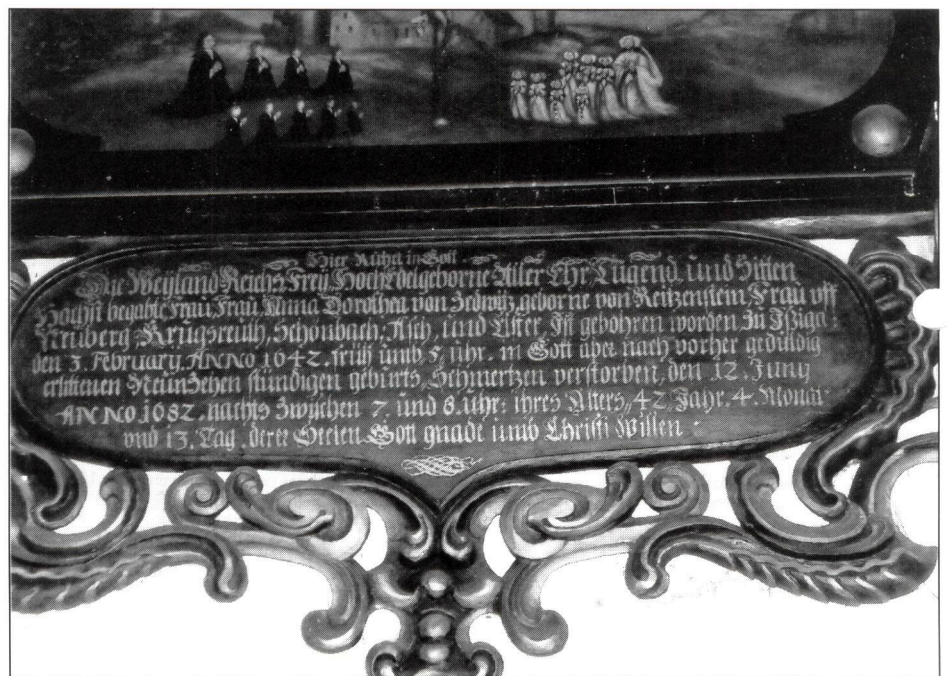 Hier Ruhet in Gott
Die Weyland Reichs Frey Hoch Edelgeborne Aller Ehr, Tugend und Sitten
Höchst begabte Frau, Frau Anna Dorothea von Zedwitz, geborne von Reitzenstein, Frau uff
Neuberg, Krugsreuth, Schönbach, Asch, und Elster, Ist gebohren worden Zu
den 3. February ANNO 1642. früh umb 5 uhr. in Gott aber nach vorher gedultig
erlittenen Neünzehen stündigen gebürts, Schmertzen verstorben, den 12. Juny
ANNO 1682. nachts Zwischen 7. und 8. uhr: ihres Alters, 42, Jahr. 4. Monat
und 13. Tag, derer Seelen Gott gnade umb Christi Willen